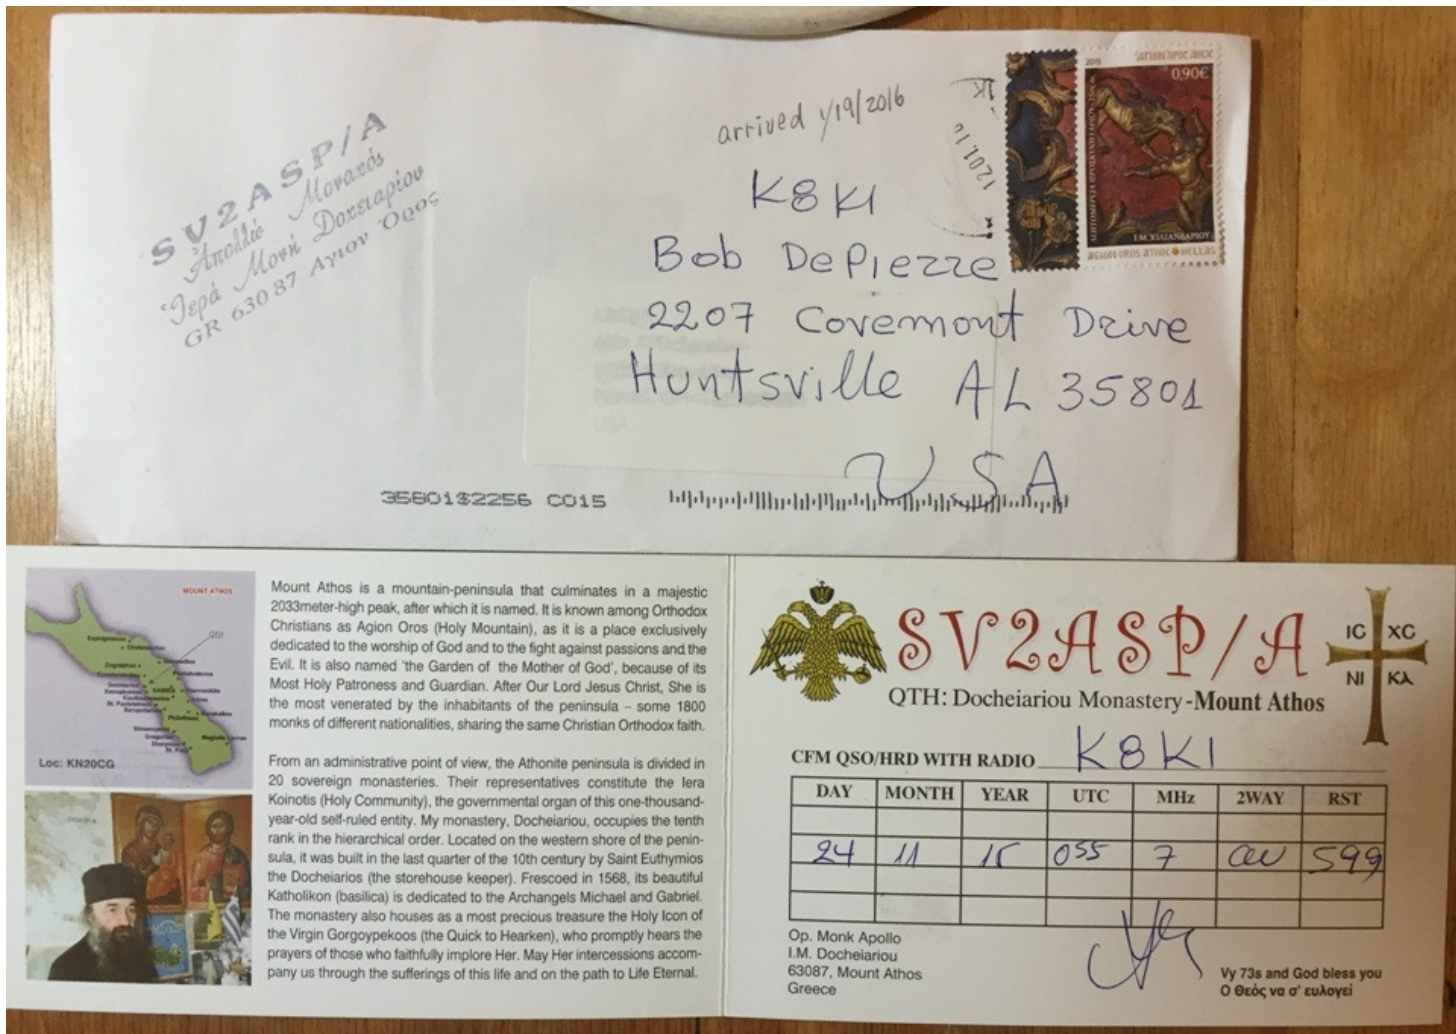 SV2ASP/A
Ἀπολλώ Μοναχός
Ἱερά Μονή Δοχειαρίου
GR 630 87 Άγιον Όρος
arrived 1/19/2016
1201.1
2015
0,90€
Ι.Μ. ΧΙΛΙΑΝΔΑΡΙΟΥ
AGION OROS ATHOC HELLAS
K8KI
Bob DePierre
2207 Covemont Drive
Huntsville AL 35801
USA
35801$2256 C015
MOUNT ATHOS
QTH
Loc: KN20CG
Mount Athos is a mountain-peninsula that culminates in a majestic
2033meter-high peak, after which it is named. It is known among Orthodox
Christians as Agion Oros (Holy Mountain), as it is a place exclusively
dedicated to the worship of God and to the fight against passions and the
Evil. It is also named 'the Garden of the Mother of God', because of its
Most Holy Patroness and Guardian. After Our Lord Jesus Christ, She is
the most venerated by the inhabitants of the peninsula – some 1800
monks of different nationalities, sharing the same Christian Orthodox faith.
From an administrative point of view, the Athonite peninsula is divided in
20 sovereign monasteries. Their representatives constitute the Iera
Koinotis (Holy Community), the governmental organ of this one-thousand-
year-old self-ruled entity. My monastery, Docheiariou, occupies the tenth
rank in the hierarchical order. Located on the western shore of the penin-
sula, it was built in the last quarter of the 10th century by Saint Euthymios
the Docheiarios (the storehouse keeper). Frescoed in 1568, its beautiful
Katholikon (basilica) is dedicated to the Archangels Michael and Gabriel.
The monastery also houses as a most precious treasure the Holy Icon of
the Virgin Gorgoypekoos (the Quick to Hearken), who promptly hears the
prayers of those who faithfully implore Her. May Her intercessions accom-
pany us through the sufferings of this life and on the path to Life Eternal.
SV2ASP/A
IC XC
NI KA
QTH: Docheiariou Monastery - Mount Athos
CFM QSO/HRD WITH RADIO K8KI
DAY MONTH YEAR UTC MHz 2WAY RST
24 11 15 055 7 CW 599
Op. Monk Apollo
I.M. Docheiariou
63087, Mount Athos
Greece
Vy 73s and God bless you
Ο Θεός να σ' ευλογεί